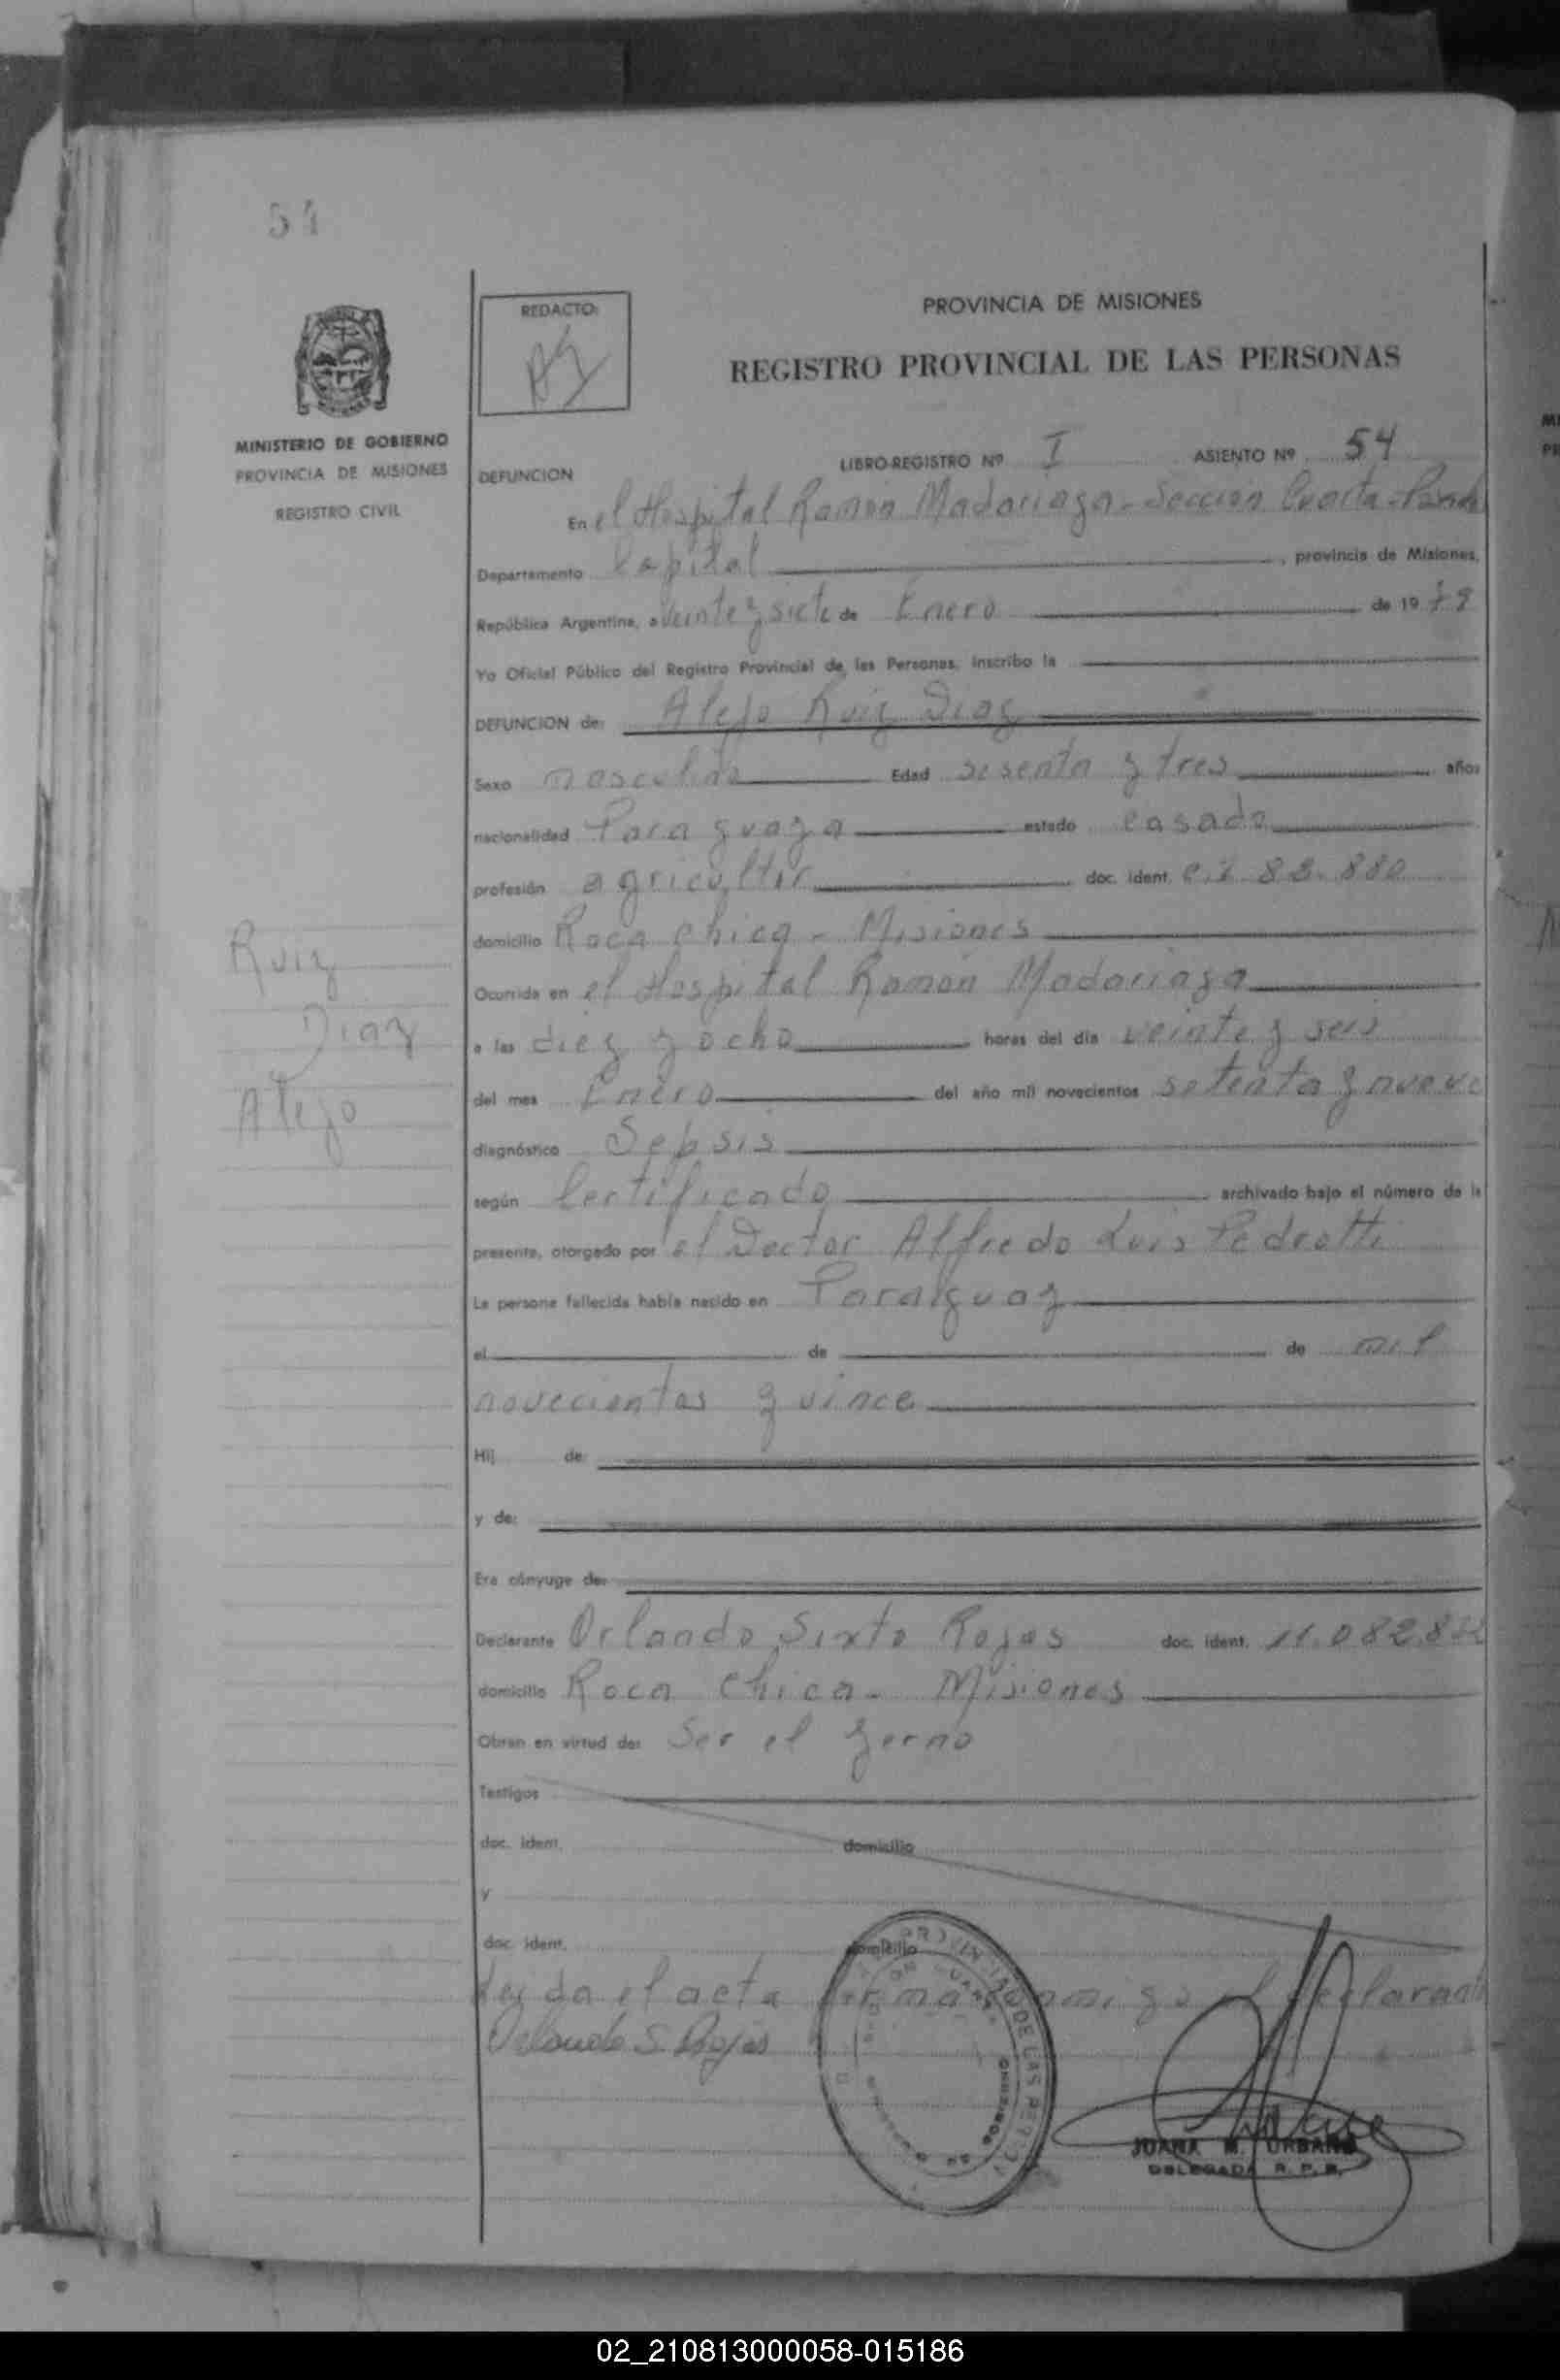 54
REDACTO:
PROVINCIA DE MISIONES
REGISTRO PROVINCIAL DE LAS PERSONAS
MINISTERIO DE GOBIERNO
PROVINCIA DE MISIONES
REGISTRO CIVIL
DEFUNCION
LIBRO-REGISTRO Nº I ASIENTO Nº 54
En el Hospital Ramón Madariaga - Sección Cuarta -
Departamento Capital, provincia de Misiones,
República Argentina, a veinte y siete de Enero de 1979
Yo Oficial Público del Registro Provincial de las Personas, inscribo la
DEFUNCION de: Alejo Ruiz Diaz
Sexo masculino Edad sesenta y tres años
nacionalidad Paraguaya estado casado
profesión agricultor doc. ident. 88.880
domicilio Roca Chica - Misiones
Ocurrida en el Hospital Ramón Madariaga
a las diez y ocho horas del día veinte y seis
del mes Enero del año mil novecientos setenta y nueve
diagnóstico Sepsis
según Certificado archivado bajo el número de la
presente, otorgado por el Doctor Alfredo Luis Pedrotti
La persona fallecida había nacido en Paraguay
el de de mil
novecientos quince
Hij de:
y de:
Era cónyuge de:
Declarante Orlando Sixto Rojas doc. ident. 11.082.8
domicilio Roca Chica - Misiones
Obran en virtud de: Ser el yerno
Testigos
doc. ident. domicilio
y
doc. ident. domicilio
Leida el acta firma conmigo el declarante
Orlando S. Rojas
JUANA M. URBANO
DELEGADA R. P. P.
Ruiz
Diaz
Alejo
02_210813000058-015186